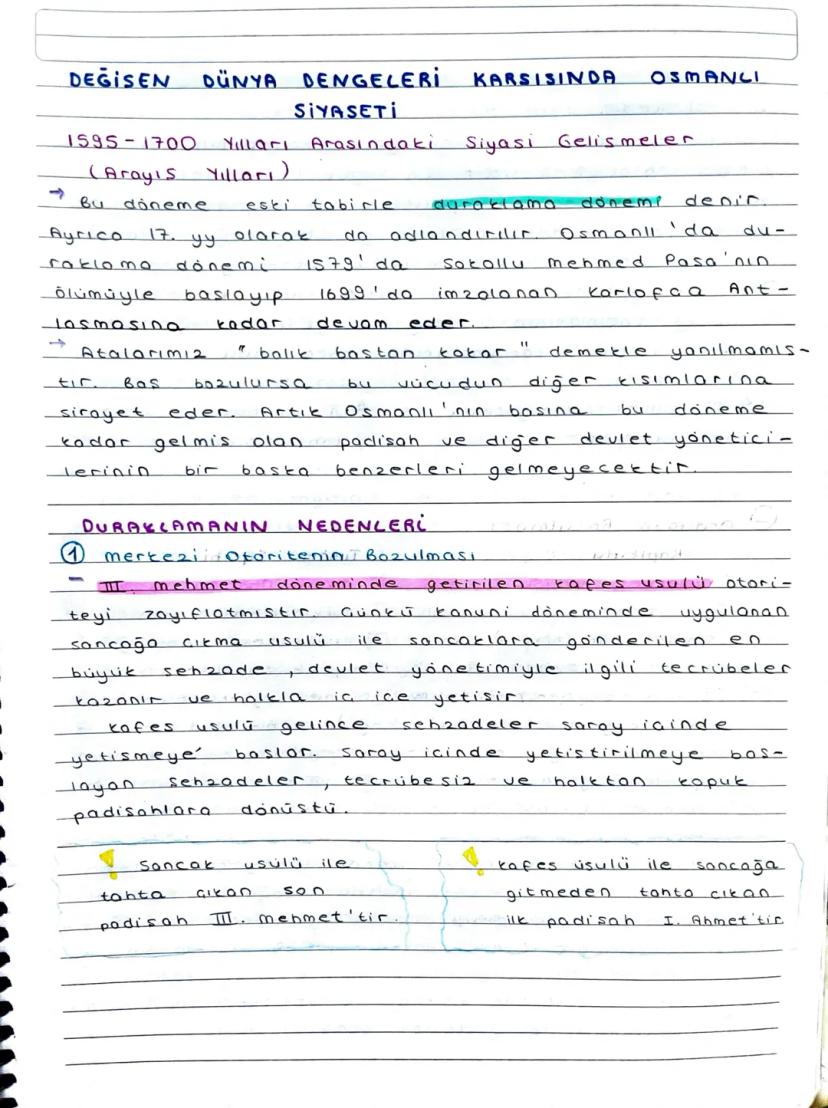 DEĞİSEN DÜNYA DENGELERİ KARSISINDA OSMANLI
SİYASETİ
1595-1700 Yılları Arasındaki Siyasi Gelismeler
(Arayıs Yılları)
→ Bu döneme eski tabirle duraklama dönemi denir.
Ayrıca 17. yy olarak da adlandırılır. Osmanlı'da du-
raklama dönemi 1579'da Sokollu Mehmed Pasa'nın
ölümüyle baslayıp 1699'da imzalanan Karlofca Ant-
lasmasına kadar devam eder.
→ Atalarımız "balık bastan kokar" demekle yanılmamıs-
tır. Bas bozulursa bu vücudun diğer kısımlarına
sirayet eder. Artık Osmanlı'nın basına bu döneme
kadar gelmis olan padisah ve diğer devlet yönetici-
lerinin bir baska benzerleri gelmeyecektir.
DURAKLAMANIN NEDENLERİ
① Merkezi Otoritenin Bozulması
- III. mehmet döneminde getirilen kafes usulü otori-
teyi zayıflatmıstır. Cünkü kanuni döneminde uygulanan
sancağa cıkma usulü ile sancaklara gönderilen en
büyük sehzade, devlet yönetimiyle ilgili tecrübeler
kazanır ve halkla ic ice yetisir
kafes usulü gelince sehzadeler saray icinde
yetismeye baslar. Saray icinde yetistirilmeye bas-
layan sehzadeler, tecrübesiz ve halktan kopuk
padisahlara dönüstü.
! Sancak usülü ile
tahta cıkan son
padisah III. mehmet'tir.
! Kafes üsulü ile sancağa
gitmeden tahta cıkan
ilk padisah I. Ahmet'tir